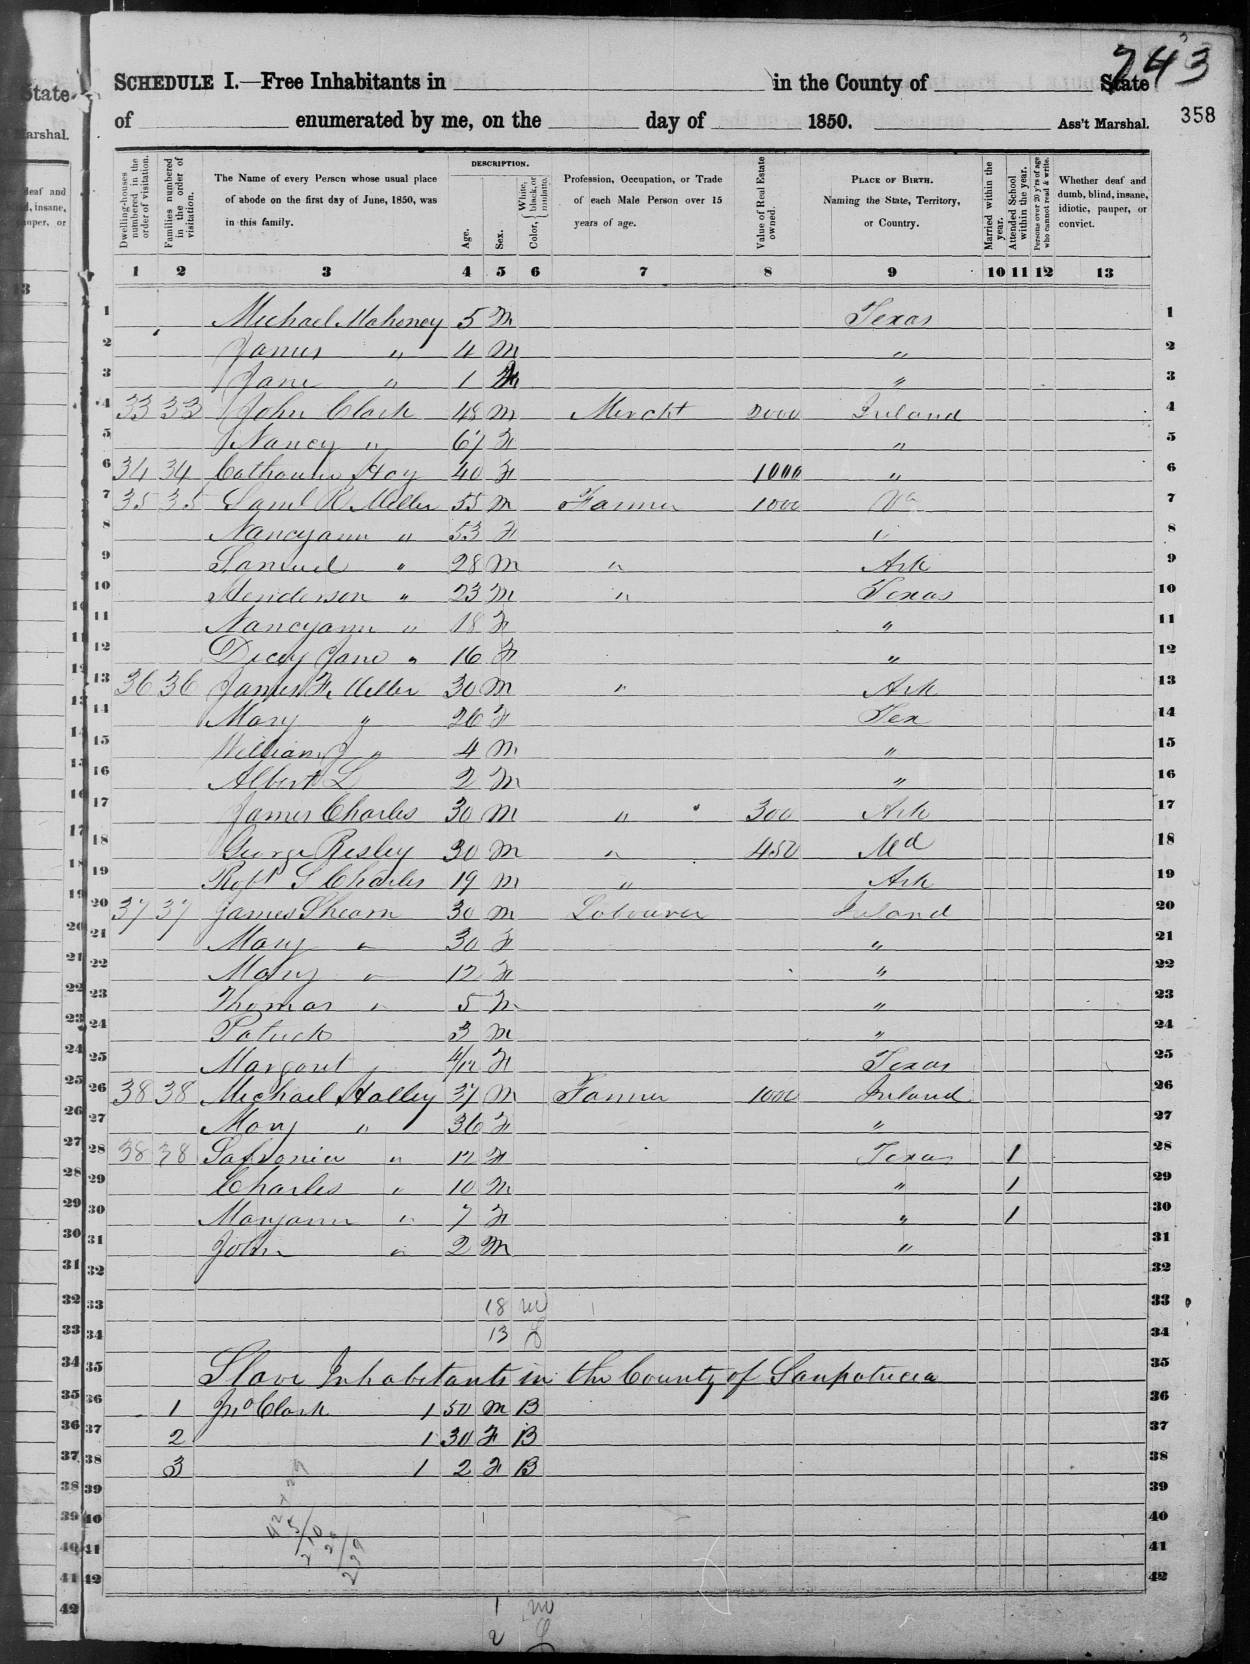 743
SCHEDULE I.—Free Inhabitants in in the County of State
358
of enumerated by me, on the day of 1850. Ass't Marshal.
Dwelling-houses numbered in the order of visitation.
Families numbered in the order of visitation.
The Name of every Person whose usual place of abode on the first day of June, 1850, was in this family.
DESCRIPTION.
Age.
Sex.
Color, { White, black, or mulatto.
Profession, Occupation, or Trade of each Male Person over 15 years of age.
Value of Real Estate owned.
PLACE OF BIRTH.
Naming the State, Territory, or Country.
Married within the year.
Attended School within the year.
Persons over 20 y'rs of age who cannot read & write.
Whether deaf and dumb, blind, insane, idiotic, pauper, or convict.
1 2 3 4 5 6 7 8 9 10 11 12 13
1 Michael Mahoney 5 M Texas 1
2 James " 4 M " 2
3 Jane " 1 " 3
4 33 33 John Clark 48 M Mercht 2000 Ireland 4
5 Nancy " 67 F " 5
6 34 34 Catharine Hoy 40 F 1000 " 6
7 35 35 Saml R Miller 55 M Farmer 1000 Va 7
8 Nancyann " 53 F " 8
9 Samuel " 28 M " Ark 9
10 Henderson " 23 M " Texas 10
11 Nancyann " 18 F " 11
12 Dicey Jane " 16 F " 12
13 36 36 James F. Miller 30 M " Ark 13
14 Mary " 26 F Tex 14
15 William J " 4 M " 15
16 Albert L 2 M " 16
17 James Charles 30 M " 300 Ark 17
18 George Resley 30 M " 450 Md 18
19 Robt S Charles 19 M " Ark 19
20 37 37 James Shearn 30 M Labourer Ireland 20
21 Mary " 30 F " 21
22 Mary " 12 F " 22
23 Thomas " 5 M " 23
24 Patrick 3 M " 24
25 Margaret 4/12 F Texas 25
26 38 38 Michael Halley 37 M Farmer 1000 Ireland 26
27 Mary " 36 F " 27
28 38 38 Safronia " 12 F Texas 1 28
29 Charles " 10 M " 1 29
30 Maryann " 7 F " 1 30
31 John " 2 M " 31
32 32
33 18 m 33
34 13 f 34
35 Slave Inhabitants in the County of Sanpatricia 35
36 1 Jno Clark 1 50 M B 36
37 2 1 30 F B 37
38 3 1 2 F B 38
39 39
40 40
41 41
42 42
1 m
2 f